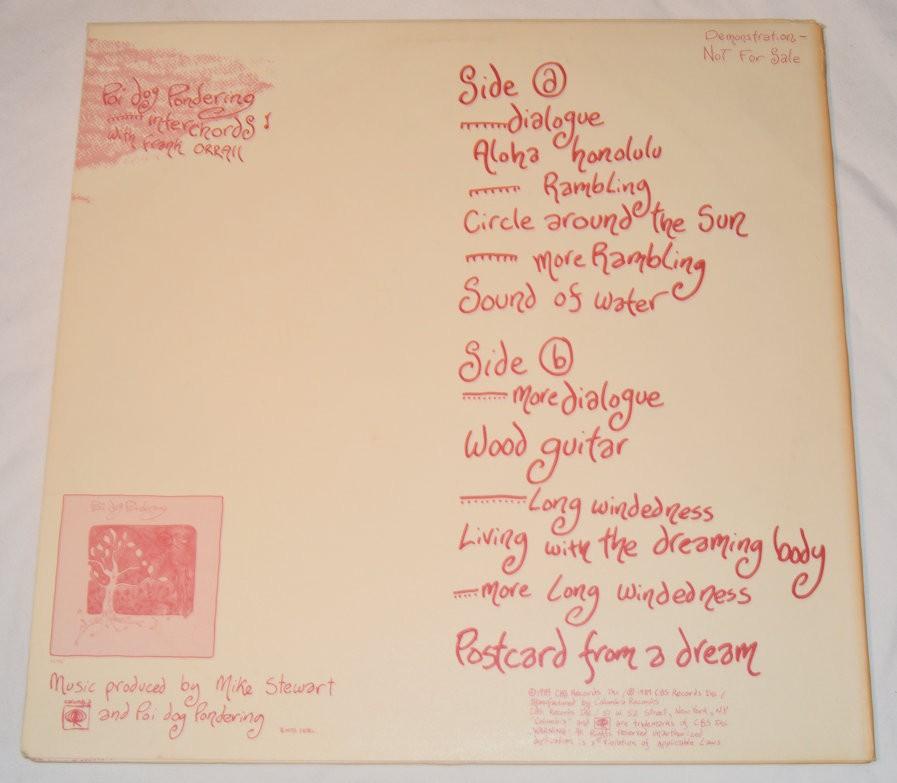 Poi dog Pondering
interchords!
with frank ORRAll
Demonstration -
NOT For Sale
Side a
dialogue
Aloha honolulu
Rambling
Circle around the Sun
more Rambling
Sound of water
Side b
more dialogue
Wood guitar
Long windedness
Living with the dreaming body
more Long windedness
Postcard from a dream
Poi dog Pondering
Music produced by Mike Stewart
columbia
and Poi dog Pondering
©1989 CBS Records Inc / ℗ 1989 CBS Records Inc /
Manufactured by Columbia Records
CBS Records Inc / 51 W 52 Street, New York, NY
"Columbia" and are trademarks of CBS Inc
"WARNING: All Rights reserved unauthorized
duplication is a violation of applicable Laws